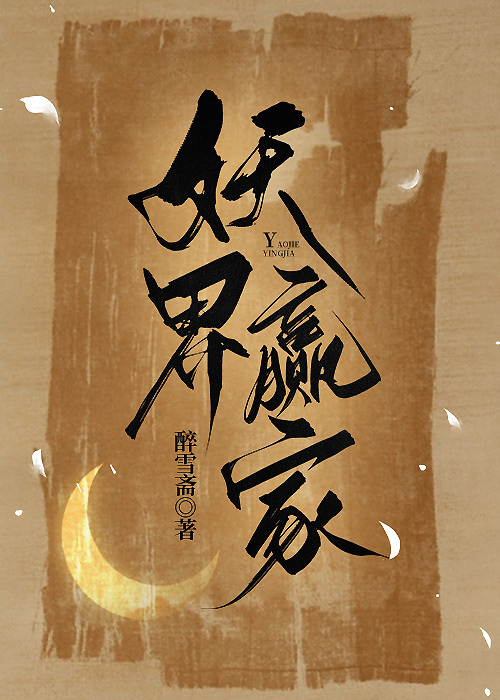 妖界
赢家
YAOJIE
YINGJIA
醉雪斋◎著